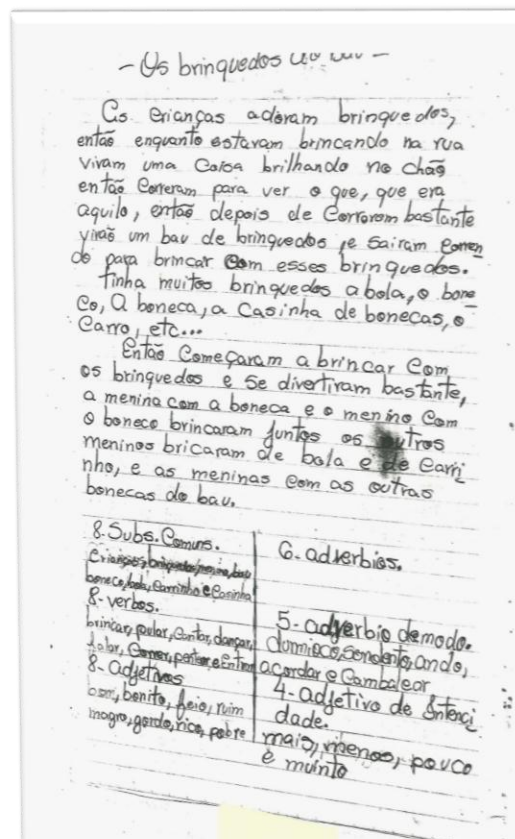 - Os brinquedos do bau -
As crianças adoram brinquedos,
então enquanto estavam brincando na rua
viram uma coisa brilhando no chão
então correram para ver o que, que era
aquilo, então depois de correrem bastante
virão um bau de brinquedos, e sairam corren
do para brincar com esses brinquedos.
Tinha muitos brinquedos a bola, o bone
co, a boneca, a casinha de bonecas, o
carro, etc...
Então começaram a brincar com
os brinquedos e se divertiram bastante,
a menina com a boneca e o menino com
o boneco brincaram juntos os outros
meninos bricaram de bola e de carri
nho, e as meninas com as outras
bonecas do bau.
8. Subs. Comuns.
crianças, brinquedos, menino, bau
boneco, bola, carrinho e casinha
8- verbos.
brincar, pular, cantar, dançar,
falar, comer, pentear e entrar
8- adjetivos
bom, bonito, feio, ruim
magro, gordo, rico, pobre
6. adverbios.
5- adverbio de modo.
ando,
acordar e cambalear
4- adjetivo de Intenci
dade.
mais, menos, pouco
e muinto